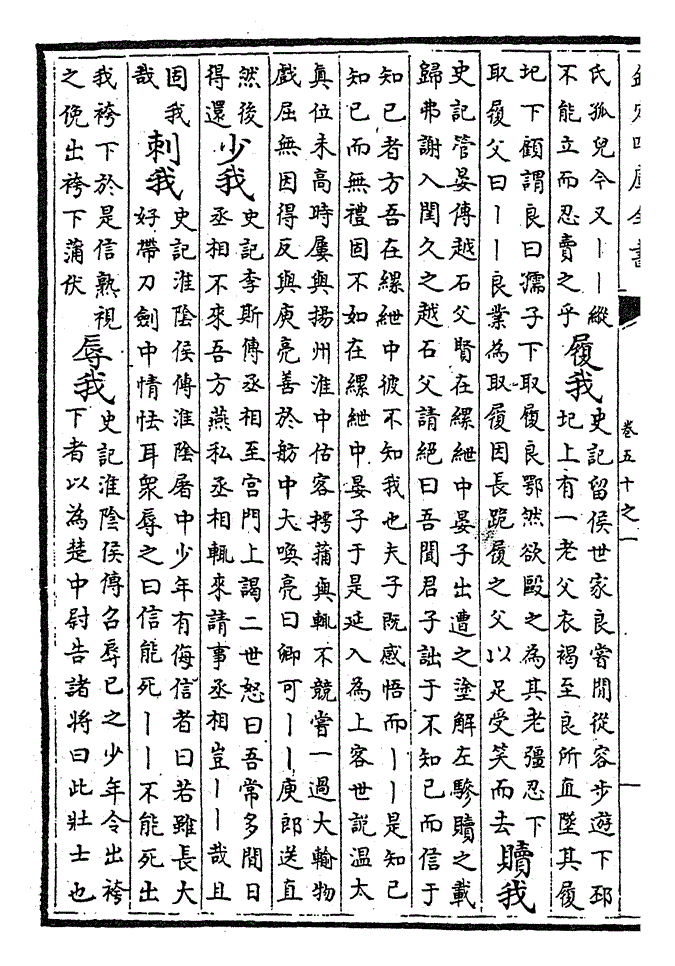 欽定四庫全書
卷五十之一
氏孤兒今又丨丨縱
不能立而忍賣之乎
履我
史記留侯世家良嘗閒從容步遊下邳
圯上有一老父衣褐至良所直墜其履
圯下顧謂良曰孺子下取履良鄂然欲毆之為其老彊忍下
取履父曰丨丨良業為取履因長跪履之父以足受笑而去
贖我
史記管晏傳越石父賢在縲紲中晏子出遭之塗解左驂贖之載
歸弗謝入閨久之越石父請絕曰吾聞君子詘于不知已而信于
知已者方吾在縲紲中彼不知我也夫子既感悟而丨丨是知已
知已而無禮固不如在縲紲中晏子于是延入為上客世說溫太
真位未高時屢與揚州淮中估客摴蒲與輒不競嘗一過大輸物
戲屈無因得反與庾亮善於舫中大喚亮曰卿可丨丨庾郎送直
然後
得還
少我
史記李斯傳丞相至宮門上謁二世怒曰吾常多閒日
丞相不來吾方燕私丞相輒來請事丞相豈丨丨哉且
固我
哉
刺我
史記淮陰侯傳淮陰屠中少年有侮信者曰若雖長大
好帶刀劍中情怯耳衆辱之曰信能死丨丨不能死出
我袴下於是信熟視
之俛出袴下蒲伏
辱我
史記淮陰侯傳召辱已之少年令出袴
下者以為楚中尉告諸將曰此壯士也